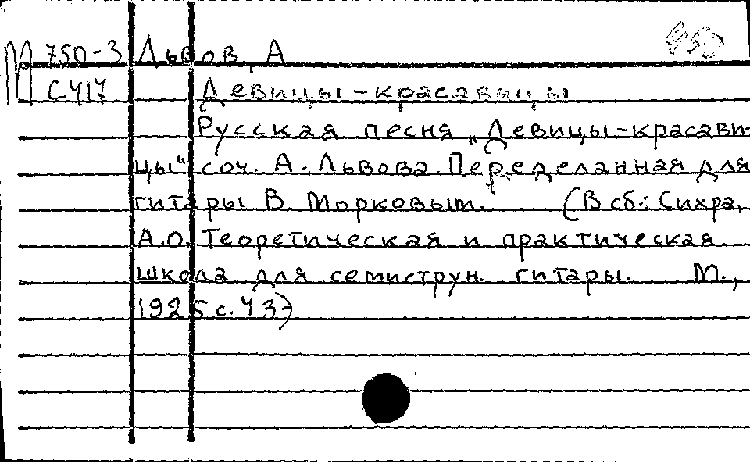 М 750-3 Львов, А
С417 Девицы-красавицы
Русская песня „Девицы-красави-
цы" соч. А. Львова. Переделанная для
гитары В. Морковым. (В сб.: Сихра,
А.О. Теоретическая и практическая
школа для семиструн. гитары. М.,
1925 с. 43)